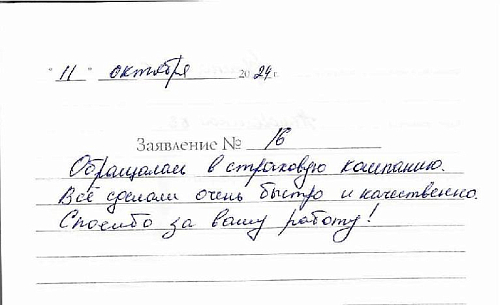 "11" октября 2024 г.
Заявление № 16
Обращалась в страховую компанию.
Всё сделали очень быстро и качественно.
Спасибо за вашу работу!